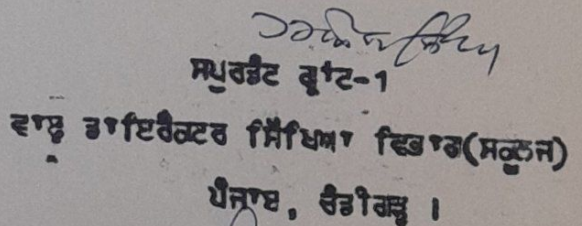 ਸਪੁਰਡੈਂਟ ਗ੍ਰਾਂਟ-1
ਵਾਲੂ ਡਾਇਰੈਕਟਰ ਸਿੱਖਿਆ ਵਿਭਾਗ(ਸਕੂਲਜ)
ਪੰਜਾਬ, ਚੰਡੀਗੜ੍ਹ ।